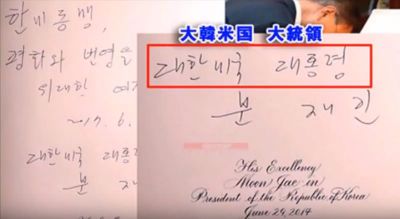 한미동맹,
평화와 번영을
위대한
2017. 6.
대한미국 대통
문 재
大韓米国 大統領
대한미국 대통령
문 재 인
His Excellency
Moon Jae-in
President of the Republic of Korea
June 29, 2017